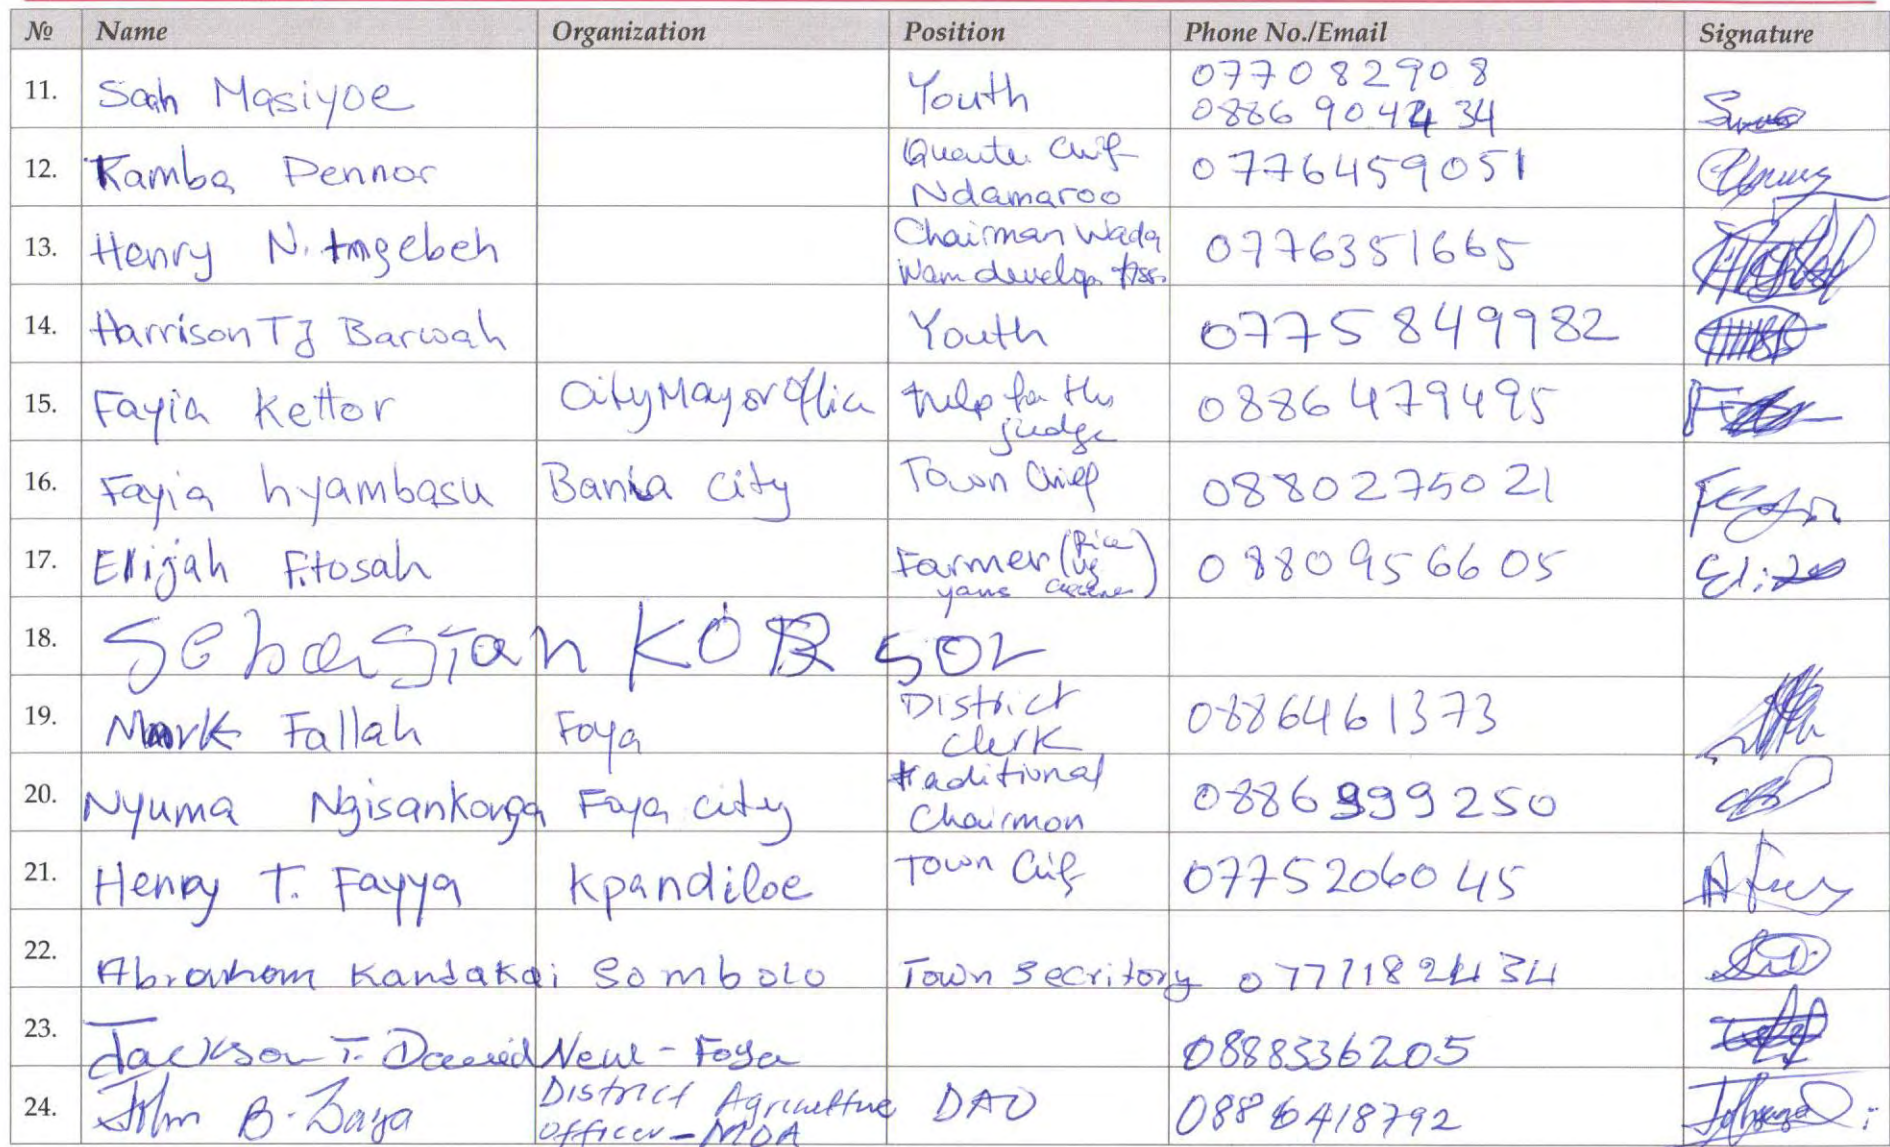 № Name Organization Position Phone No./Email Signature
11. Saah Masiyoe Youth 077082908
0886904234
12. Kamba Pennor Quarter Chif
Ndamaroo 0776459051
13. Henry N. Chairman Wada
Wam develop. Ass. 0776351665
14. Harrison TJ Barwah Youth 0775849982
15. Fayia Kettor City Mayor Office help for the
judge 0886479495
16. Fayia hyambasu Bania city Town Chief 0880275021
17. Elijah F. tosah Farmer (Rice
yams) 0880956605
18. Sebastian KOR SOR
19. Mark Fallah Foya District
Clerk 0886461373
20. Nyuma Ngisankonga Foya city traditional
Chairmon 0886999250
21. Henry T. Fayya Kpandiloe Town Cif 0775206045
22. Abraham Kandakai Sombolo Town Secritory
23. Jackson T. David New-Foya 0888336205
24. John B. Baya District Agriculture
Officer-MOA DAO 0886418792